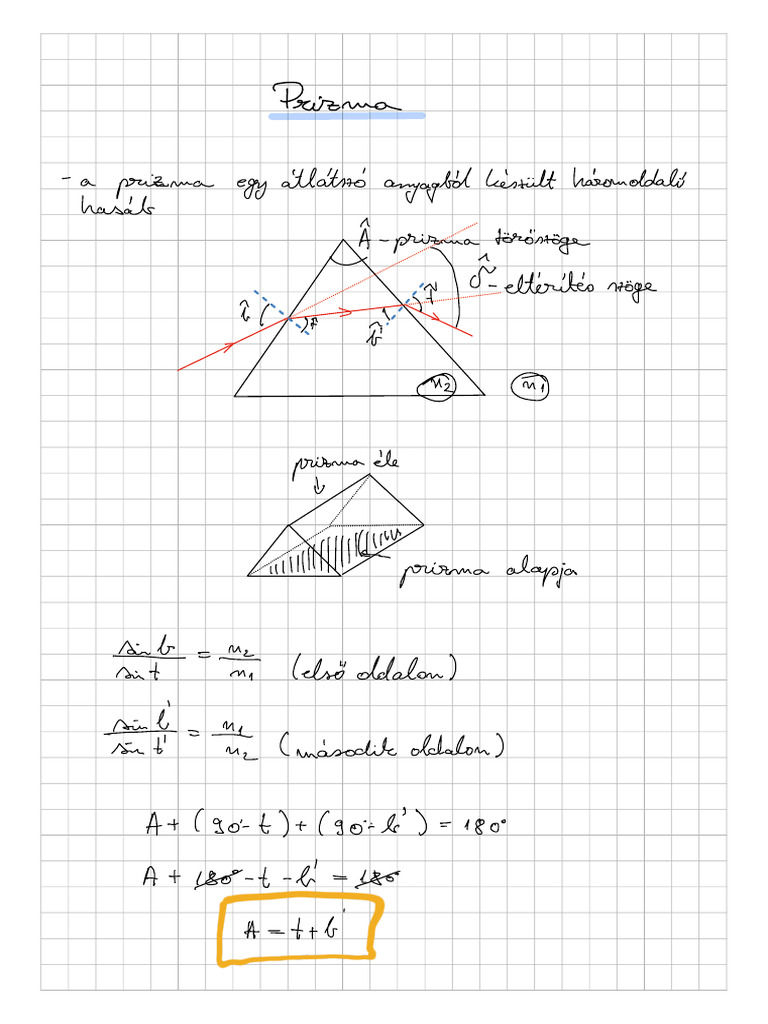 Prizma
- a prizma egy átlátszó anyagból készült háromoldalú
hasáb
Â - prizma törőszöge
δ̂ - eltérítés szöge
b̂
t̂
b̂'
t̂'
n₂
n₁
prizma éle
prizma alapja
sin b / sin t = n₂ / n₁ (első oldalon)
sin b' / sin t' = n₁ / n₂ (második oldalon)
A + (90° - t) + (90° - b') = 180°
A + 180° - t - b' = 180°
A = t + b'